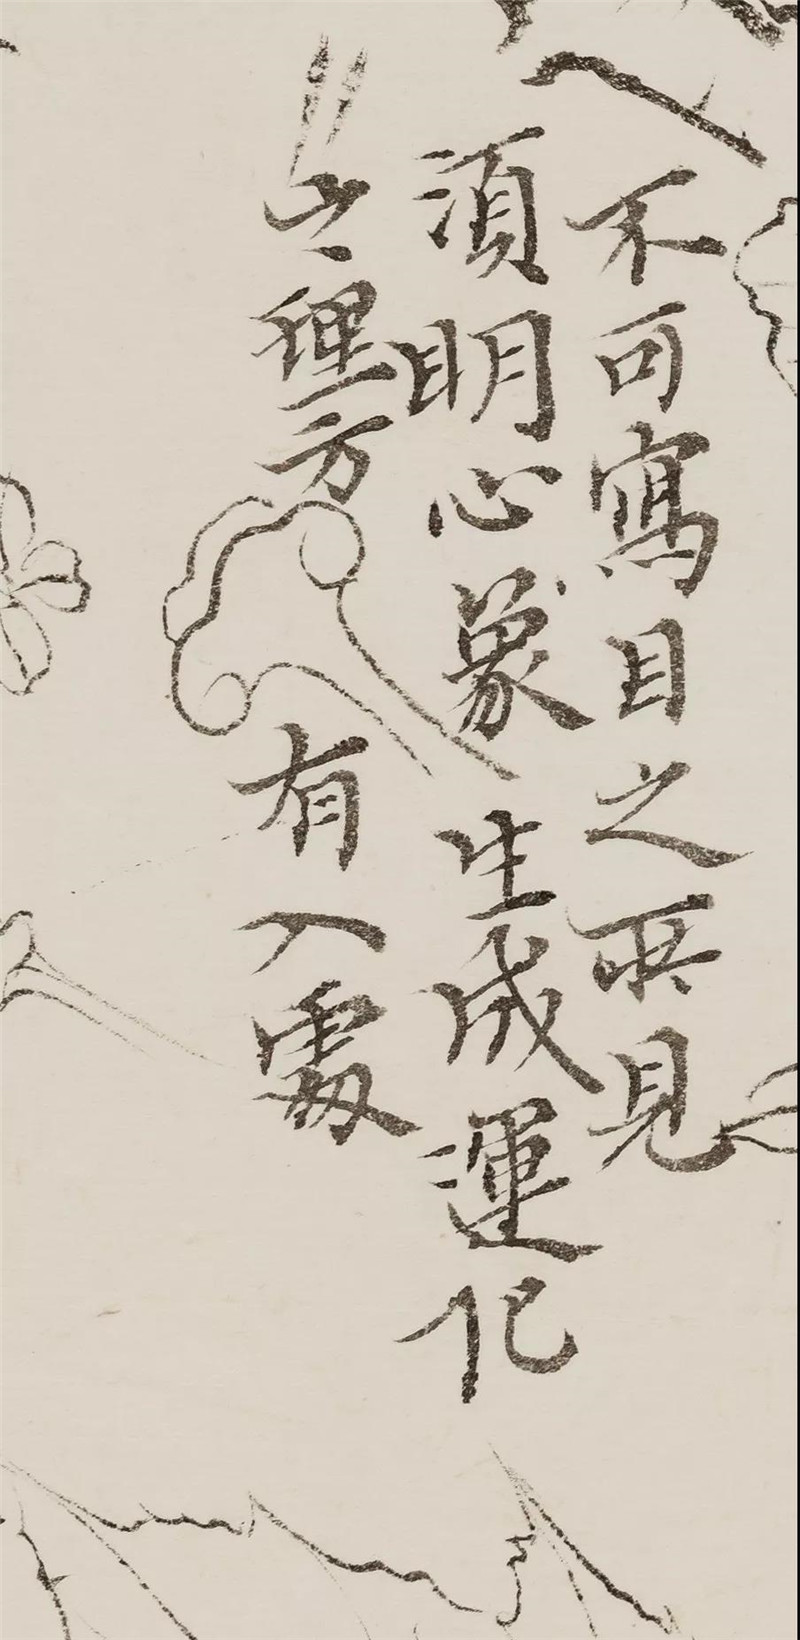 不可寫目之所見
須明心象生成運化
之理方有入處